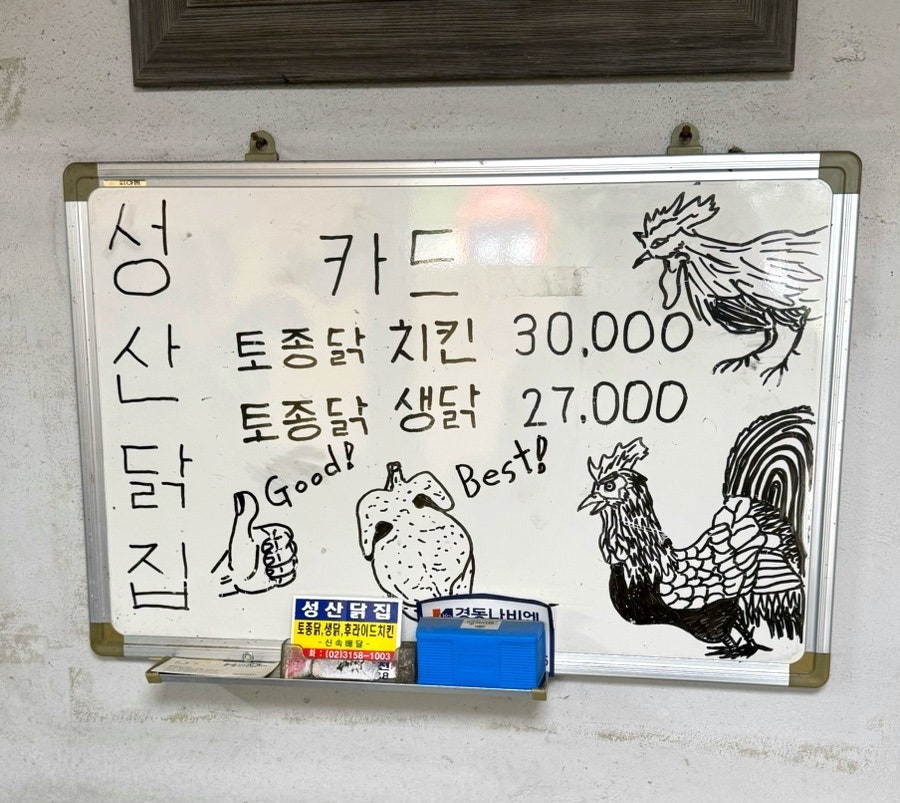 성산닭집
카드
토종닭 치킨 30,000
토종닭 생닭 27,000
Good!
Best!
성산닭집
토종닭,생닭,후라이드치킨
-신속배달-
화 : (02)3158-1003
경동나비엔